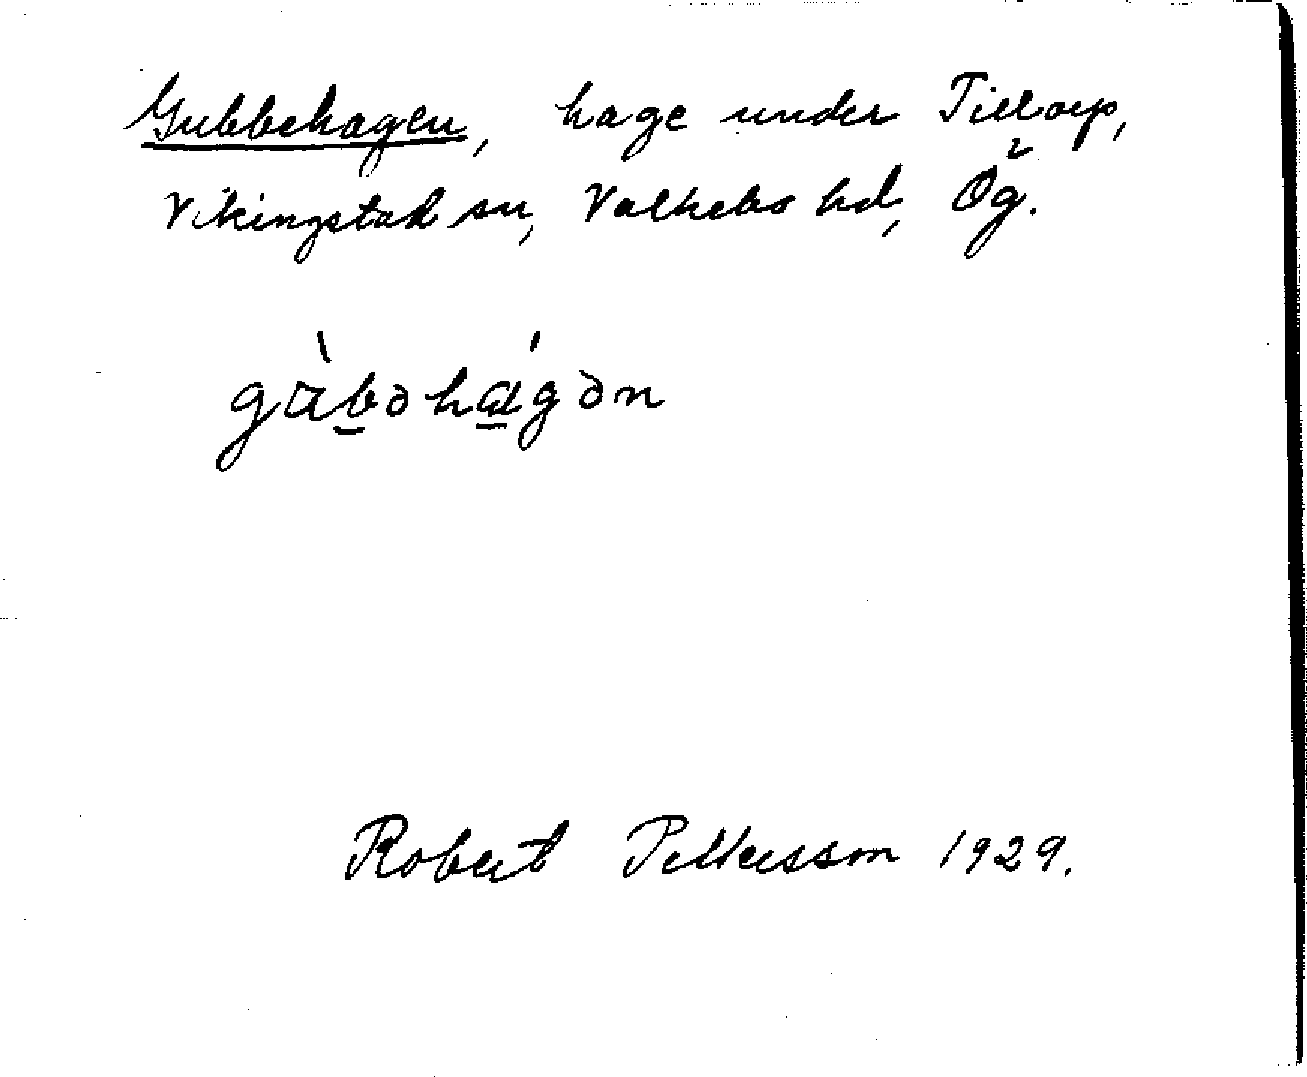 Gubbehagen, hage under Tillorp,
Vikingstad sn, Valkebo hd, Ög.
gùbəhágən
Robert Pettersson 1929.